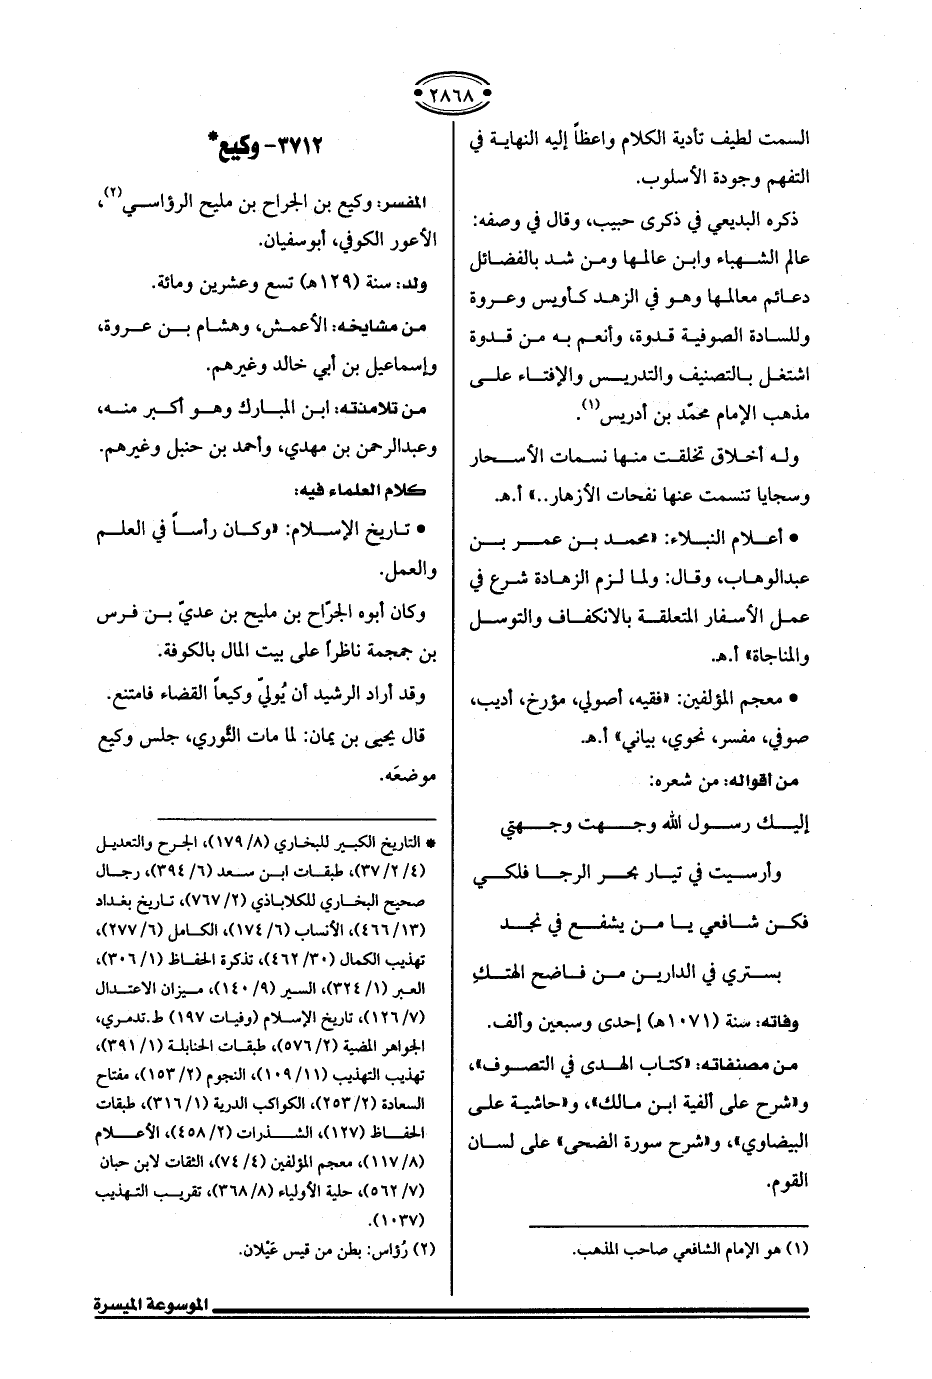 ٢٨٦٨
السمت لطيف تأدية الكلام واعظاً إليه النهاية في
التفهم وجودة الأسلوب.
ذكره البديعي في ذكرى حبيب، وقال في وصفه:
عالم الشهباء وابن عالمها ومن شد بالفضائل
دعائم معالمها وهو في الزهد كأويس وعروة
وللسادة الصوفية قدوة، وأنعم به من قدوة
اشتغل بالتصنيف والتدريس والإفتاء على
مذهب الإمام محمّد بن أدريس(١).
وله أخلاق تخلقت منها نسمات الأسحار
وسجايا تنسمت عنها نفحات الأزهار..» أ.هـ.
• أعلام النبلاء: «محمد بن عمر بن
عبدالوهاب، وقال: ولما لزم الزهادة شرع في
عمل الأسفار المتعلقة بالانكفاف والتوسل
والمناجاة» أ.هـ.
• معجم المؤلفين: «فقيه، أصولي، مؤرخ، أديب،
صوفي، مفسر، نحوي، بياني» أ.هـ.
من أقواله: من شعره:
إليك رسول الله وجهت وجهتي
وأرسيت في تيار بحر الرجا فلكي
فكن شافعي يا من يشفع في نجد
بستري في الدارين من فاضح الهتك
وفاته: سنة (١٠٧١هـ) إحدى وسبعين وألف.
من مصنفاته: «كتاب الهدى في التصوف»،
و«شرح على ألفية ابن مالك»، و«حاشية على
البيضاوي»، و«شرح سورة الضحى» على لسان
القوم.
(١) هو الإمام الشافعي صاحب المذهب.
٣٧١٢- وكيع*
المفسر: وكيع بن الجراح بن مليح الرؤاسي(٢)،
الأعور الكوفي، أبوسفيان.
ولد: سنة (١٢٩هـ) تسع وعشرين ومائة.
من مشايخه: الأعمش، وهشام بن عروة،
وإسماعيل بن أبي خالد وغيرهم.
من تلامذته: ابن المبارك وهو أكبر منه،
وعبدالرحمن بن مهدي، وأحمد بن حنبل وغيرهم.
كلام العلماء فيه:
• تاريخ الإسلام: «وكان رأساً في العلم
والعمل.
وكان أبوه الجرّاح بن مليح بن عديّ بن فرس
بن جمجمة ناظراً على بيت المال بالكوفة.
وقد أراد الرشيد أن يُوليّ وكيعاً القضاء فامتنع.
قال يحيى بن يمان: لما مات الثَّوري، جلس وكيع
موضعَه.
* التاريخ الكبير للبخاري (٨/ ١٧٩)، الجرح والتعديل
(٤/ ٢/ ٣٧)، طبقات ابن سعد (٦/ ٣٩٤)، رجال
صحيح البخاري للكلاباذي (٢/ ٧٦٧)، تاريخ بغداد
(١٣/ ٤٦٦)، الأنساب (٦/ ١٧٤)، الكامل (٦/ ٢٧٧)،
تهذيب الكمال (٣٠/ ٤٦٢)، تذكرة الحفاظ (١/ ٣٠٦)،
العبر (١/ ٣٢٤)، السير (٩/ ١٤٠)، ميزان الاعتدال
(٧/ ١٢٦)، تاريخ الإسلام (وفيات ١٩٧) ط.تدمري،
الجواهر المضية (٢/ ٥٧٦)، طبقات الحنابلة (١/ ٣٩١)،
تهذيب التهذيب (١١/ ١٠٩)، النجوم (٢/ ١٥٣)، مفتاح
السعادة (٢/ ٢٥٣)، الكواكب الدرية (١/ ٣١٦)، طبقات
الحفاظ (١٢٧)، الشذرات (٢/ ٤٥٨)، الأعلام
(٨/ ١١٧)، معجم المؤلفين (٤/ ٧٤)، الثقات لابن حبان
(٧/ ٥٦٢)، حلية الأولياء (٨/ ٣٦٨)، تقريب التهذيب
(١٠٣٧).
(٢) رُؤاس: بطن من قيس عَيْلان.
الموسوعة الميسرة